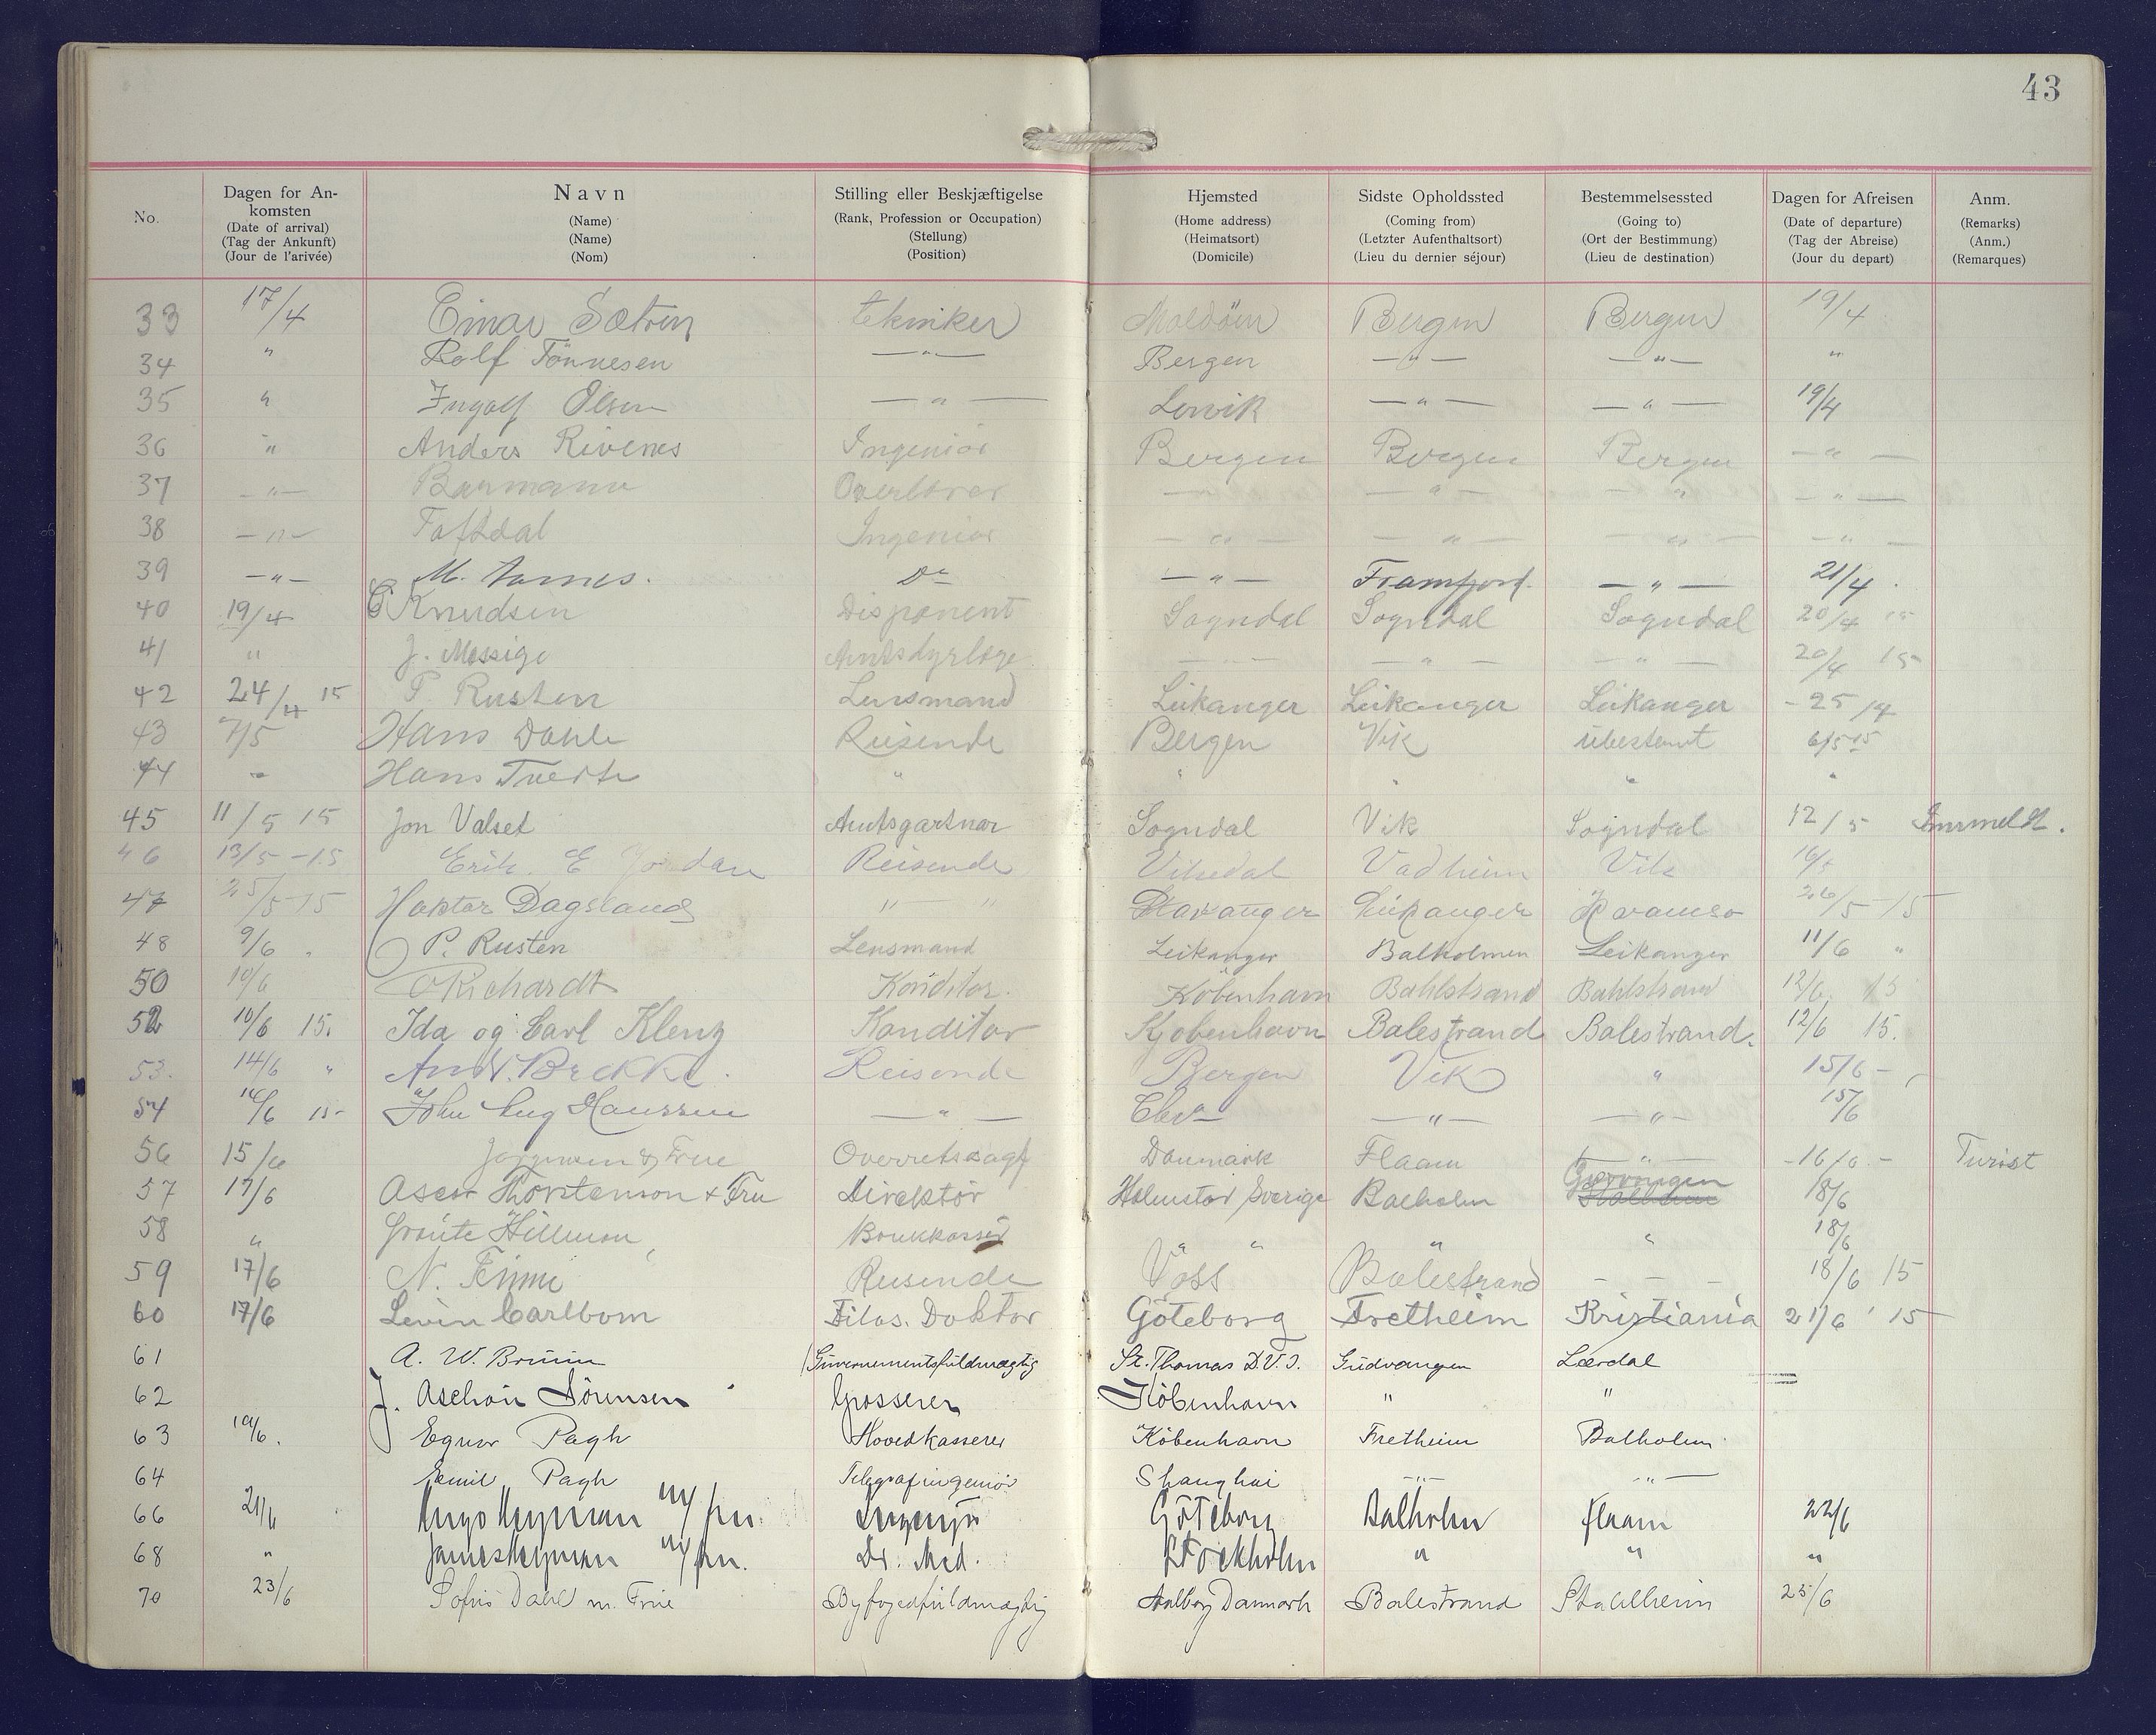 43
No. Dagen for An- Navn Stilling eller Beskjæftigelse Hjemsted Sidste Opholdssted Bestemmelsessted Dagen for Afreisen Anm.
komsten (Name) (Rank, Profession or Occupation) (Home address) (Coming from) (Going to) (Date of departure) (Remarks)
(Date of arrival) (Name) (Stellung) (Heimatsort) (Letzter Aufenthaltsort) (Ort der Bestimmung) (Tag der Abreise) (Anm.)
(Tag der Ankunft) (Nom) (Position) (Domicile) (Lieu du dernier séjour) (Lieu de destination) (Jour du depart) (Remarques)
(Jour de l'arivée)
33 17/4 Einar tekniker Bergen Bergen 19/4
34 " Rolf Tönnesen —"— Bergen —"— —"— "
35 " Ingolf Olsen —"— —"— —"— 19/4
36 " Anders Rivenes Ingeniör Bergen Bergen Bergen —"—
37 —"— —"— —"— —"— —"—
38 —"— Ingeniör —"— —"— —"— —"—
39 —"— M. Do —"— —"— 21/4
40 19/4 Knudsen Disponent Sogndal Sogndal Sogndal 20/4 15
41 " J. Amtsdyrlæge —"— —"— —"— 20/4 15
42 24/4 15 P Rusten Lensmand Leikanger Leikanger Leikanger - 25/4
43 7/5 Hans Dahle Reisende Bergen Vik ubestemt 6/5 15
44 " Hans " " " " "
45 11/5 15 Jon Valset Amtsgartnar Sogndal Vik Sogndal 12/5
46 13/5 -15 Erik. E Reisende Vadheim Vik 16/5
47 25/5 15 Dagsland " " Stavanger Leikanger 26/5 15
48 9/6 " P. Rusten Lensmand Leikanger Balholmen Leikanger 11/6 "
50 10/6 Richardt Konditor. Köbenhavn Bahlstrand Bahlstrand 12/6 15
52 10/6 15. Ida og Carl Klenz Konditor Kjøbenhavn Balestrand Balestrand. 12/6 15.
53. 14/6 " And. Brekke. Reisende Bergen Vik " 15/6 -
54 14/6 15- John Aug Hanssen —"— —"— —"— 15/6
56 15/6 Jørgensen & Frue Danmark Flaam —"— -16/6.- Turist
57 17/6 Thorstenson + Fru Direktör Halmstad Sverige Balholm 18/6
58 " Hillman " " " " 18/6
59 17/6 N. Reisende Voss Balestrand - - - 18/6 15
60 17/6 Levin Carlbom Filos. Doktor Göteborg Fretheim Kristiania 21/6 ' 15
61 A. W. Bruun Guvernementsfuldmægtig St. Thomas D.V.I. Gudvangen Lærdal
62 J. Sörensen Grosserer Köbenhavn " "
63 19/6. Pagh Hovedkasserer Köbenhavn Fretheim Balholm
64 Emil Pagh Telegrafingeniör Shanghai —"— —"—
66 21/6 Hugo Heyman m/fru. Ingenjör Göteborg Balholm Flaam 22/6
68 " James Heyman m/fru. Dr. Med. Stockholm " " "
70 23/6 Sofus Dahl m. Frue Byfogedfuldmægtig Aalborg Danmark Balestrand Stahlheim 25/6